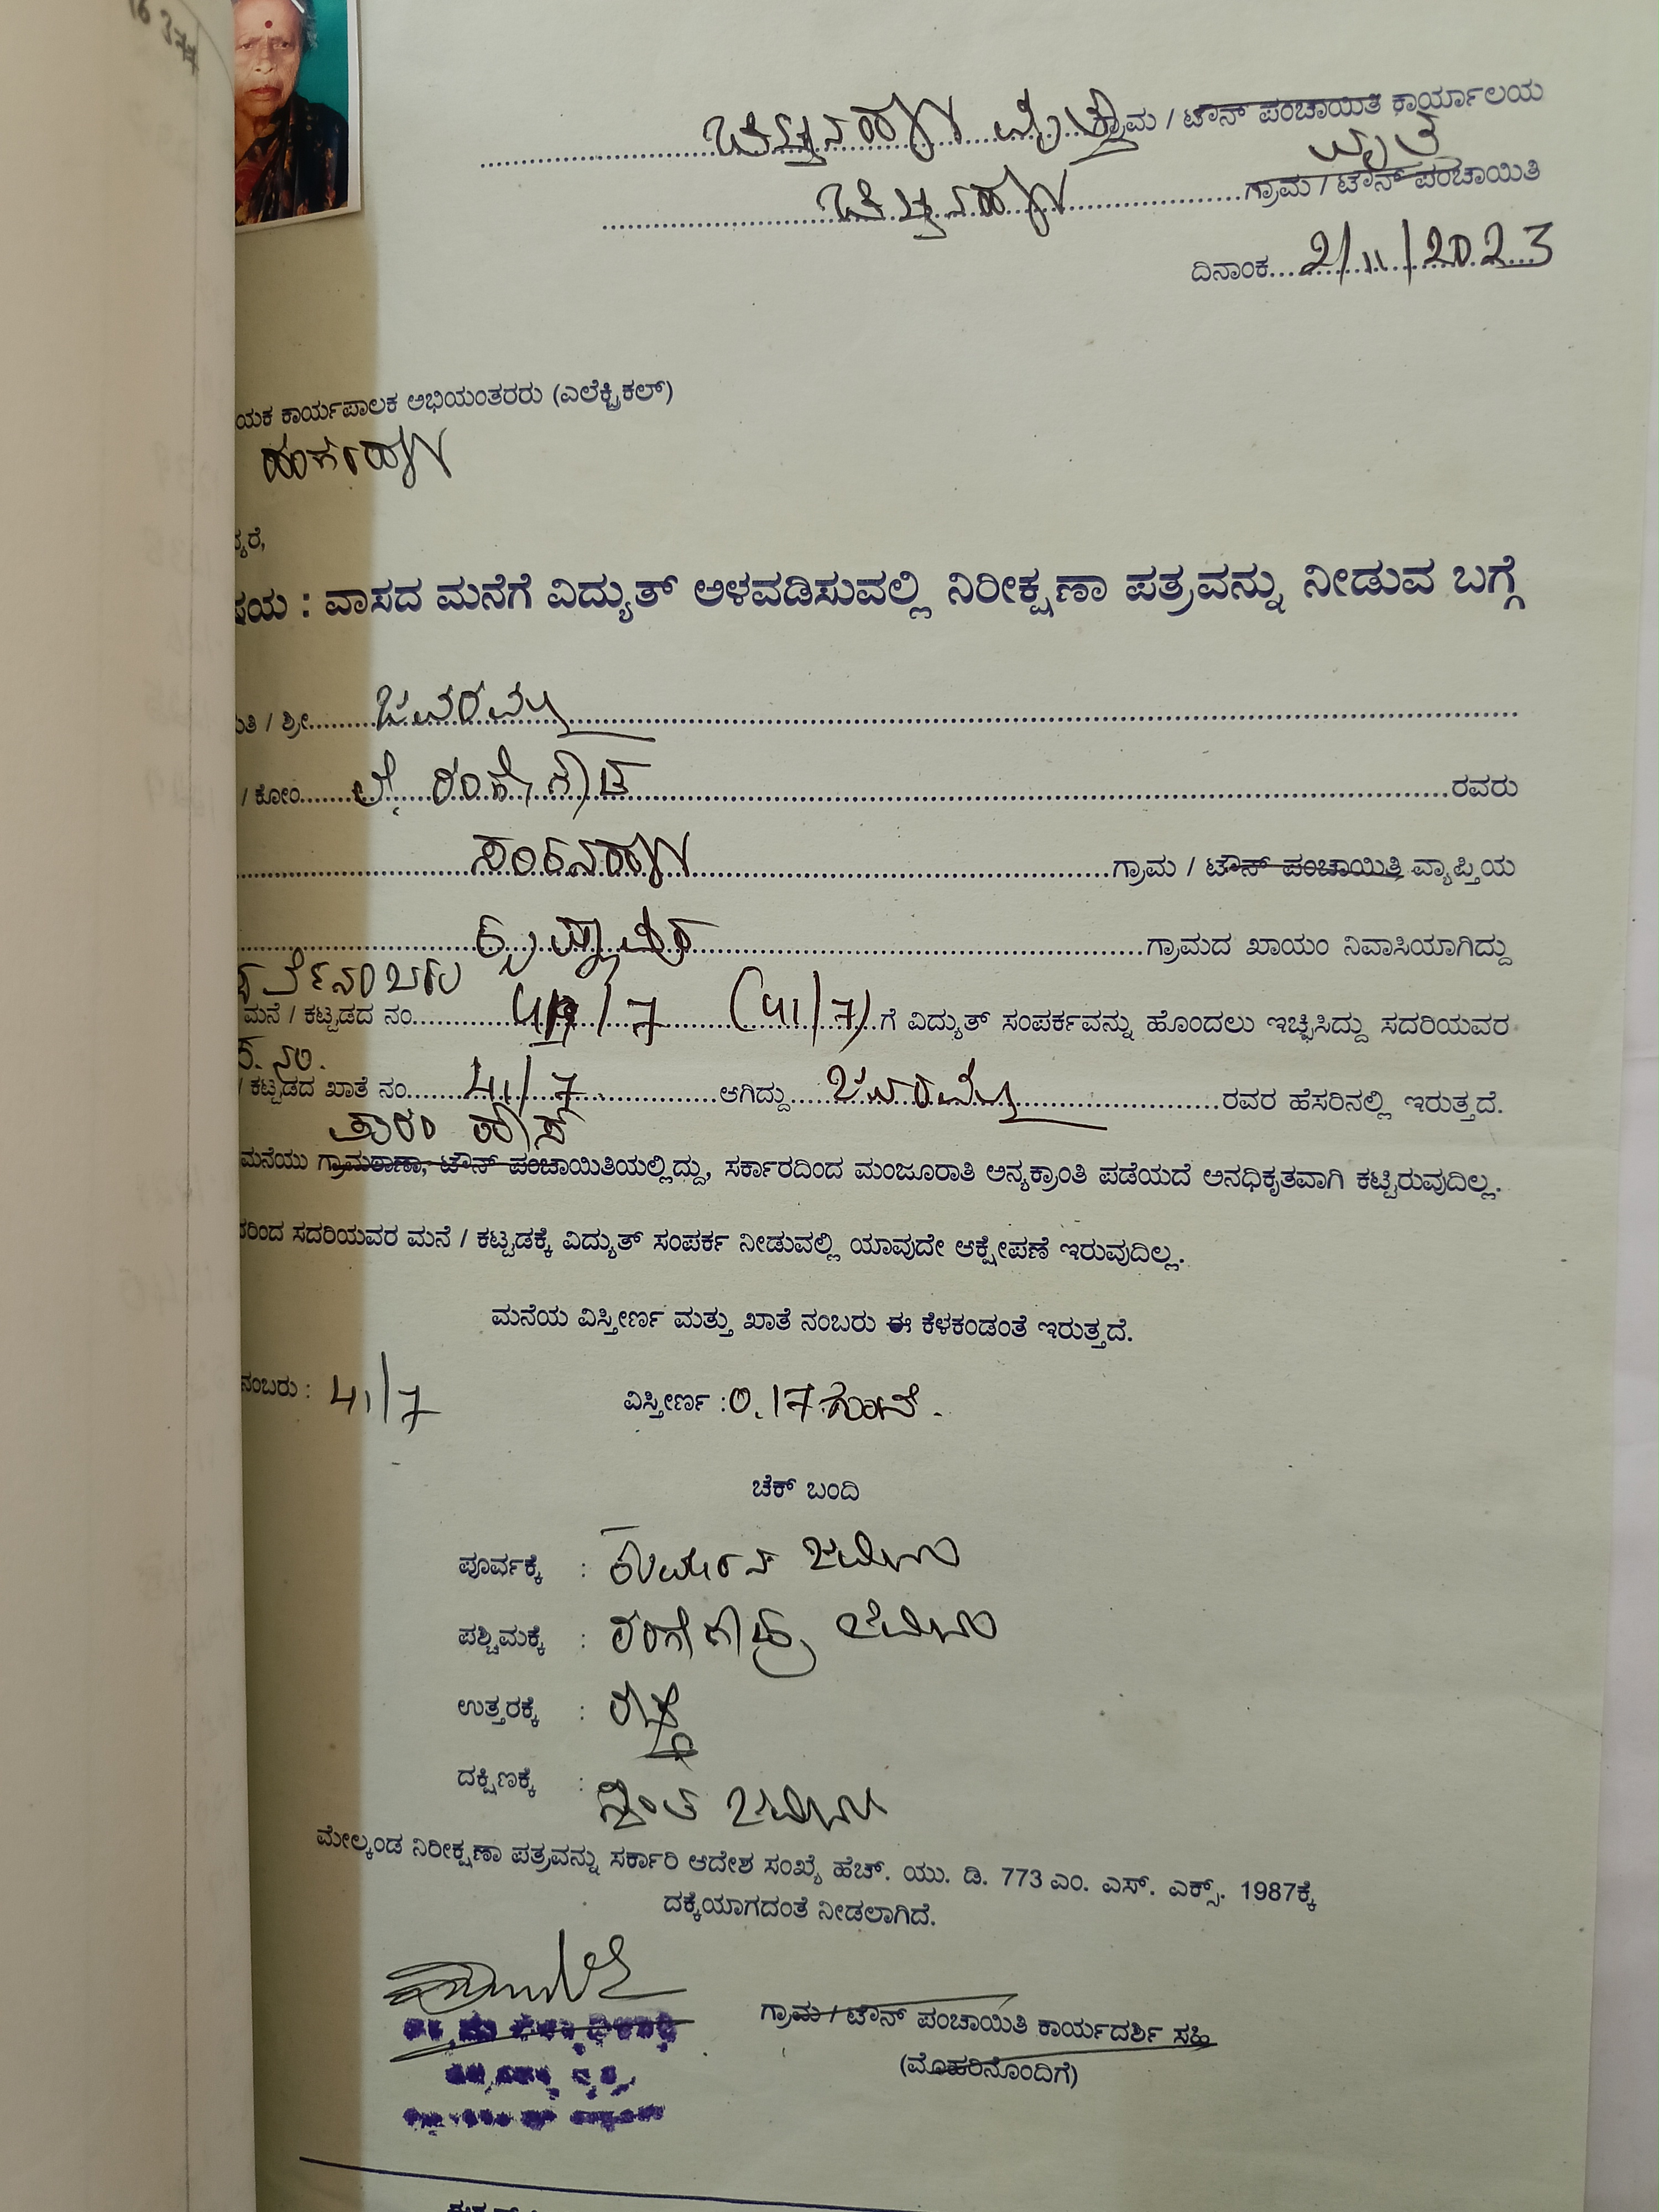 16377
ಚಿಕ್ಕನಹಳ್ಳಿ ವೃತ್ತ ಗ್ರಾಮ / ಟೌನ್ ಪಂಚಾಯಿತಿ ಕಾರ್ಯಾಲಯ
ವೃತ್ತ
ಚಿಕ್ಕನಹಳ್ಳಿ ಗ್ರಾಮ / ಟೌನ್ ಪಂಚಾಯಿತಿ
ದಿನಾಂಕ 2/11/2023
ಯಕ ಕಾರ್ಯಪಾಲಕ ಅಭಿಯಂತರರು (ಎಲೆಕ್ಟ್ರಿಕಲ್)
ಷಯ : ವಾಸದ ಮನೆಗೆ ವಿದ್ಯುತ್ ಅಳವಡಿಸುವಲ್ಲಿ ನಿರೀಕ್ಷಣಾ ಪತ್ರವನ್ನು ನೀಡುವ ಬಗ್ಗೆ
ತಿ / ಶ್ರೀ ಜವರಮ್ಮ
/ ಕೋಂ ಲೇ ರಂಗೇಗೌಡ ರವರು
ಗ್ರಾಮ / ಟೌನ್ ಪಂಚಾಯಿತಿ ವ್ಯಾಪ್ತಿಯ
ಗ್ರಾಮದ ಖಾಯಂ ನಿವಾಸಿಯಾಗಿದ್ದು
ಸರ್ವೆ ನಂಬರು
ಮನೆ / ಕಟ್ಟಡದ ನಂ 41/7 (41/7) ಗೆ ವಿದ್ಯುತ್ ಸಂಪರ್ಕವನ್ನು ಹೊಂದಲು ಇಚ್ಛಿಸಿದ್ದು ಸದರಿಯವರ
ಸ.ನಂ.
/ ಕಟ್ಟಡದ ಖಾತೆ ನಂ 41/7 ಆಗಿದ್ದು ಜವರಮ್ಮ ರವರ ಹೆಸರಿನಲ್ಲಿ ಇರುತ್ತದೆ.
ಫಾರಂ ಹೌಸ್
ಮನೆಯು ಗ್ರಾಮಠಾಣಾ, ಟೌನ್ ಪಂಚಾಯಿತಿಯಲ್ಲಿದ್ದು, ಸರ್ಕಾರದಿಂದ ಮಂಜೂರಾತಿ ಅನ್ಯಕ್ರಾಂತಿ ಪಡೆಯದೆ ಅನಧಿಕೃತವಾಗಿ ಕಟ್ಟಿರುವುದಿಲ್ಲ.
ರಿಂದ ಸದರಿಯವರ ಮನೆ / ಕಟ್ಟಡಕ್ಕೆ ವಿದ್ಯುತ್ ಸಂಪರ್ಕ ನೀಡುವಲ್ಲಿ ಯಾವುದೇ ಆಕ್ಷೇಪಣೆ ಇರುವುದಿಲ್ಲ.
ಮನೆಯ ವಿಸ್ತೀರ್ಣ ಮತ್ತು ಖಾತೆ ನಂಬರು ಈ ಕೆಳಕಂಡಂತೆ ಇರುತ್ತದೆ.
ನಂಬರು : 41/7 ವಿಸ್ತೀರ್ಣ : 0.17 ಗುಂಟೆ.
ಚೆಕ್ ಬಂದಿ
ಪೂರ್ವಕ್ಕೆ : ಜಮೀನು
ಪಶ್ಚಿಮಕ್ಕೆ : ರಂಗೇಗೌಡ್ರ ಜಮೀನು
ಉತ್ತರಕ್ಕೆ : ರಸ್ತೆ
ದಕ್ಷಿಣಕ್ಕೆ : ಸ್ವಂತ ಜಮೀನು
ಮೇಲ್ಕಂಡ ನಿರೀಕ್ಷಣಾ ಪತ್ರವನ್ನು ಸರ್ಕಾರಿ ಆದೇಶ ಸಂಖ್ಯೆ ಹೆಚ್. ಯು. ಡಿ. 773 ಎಂ. ಎಸ್. ಎಕ್ಸ್. 1987ಕ್ಕೆ
ದಕ್ಕೆಯಾಗದಂತೆ ನೀಡಲಾಗಿದೆ.
ಗ್ರಾಮ / ಟೌನ್ ಪಂಚಾಯಿತಿ ಕಾರ್ಯದರ್ಶಿ ಸಹಿ
(ಮೊಹರಿನೊಂದಿಗೆ)